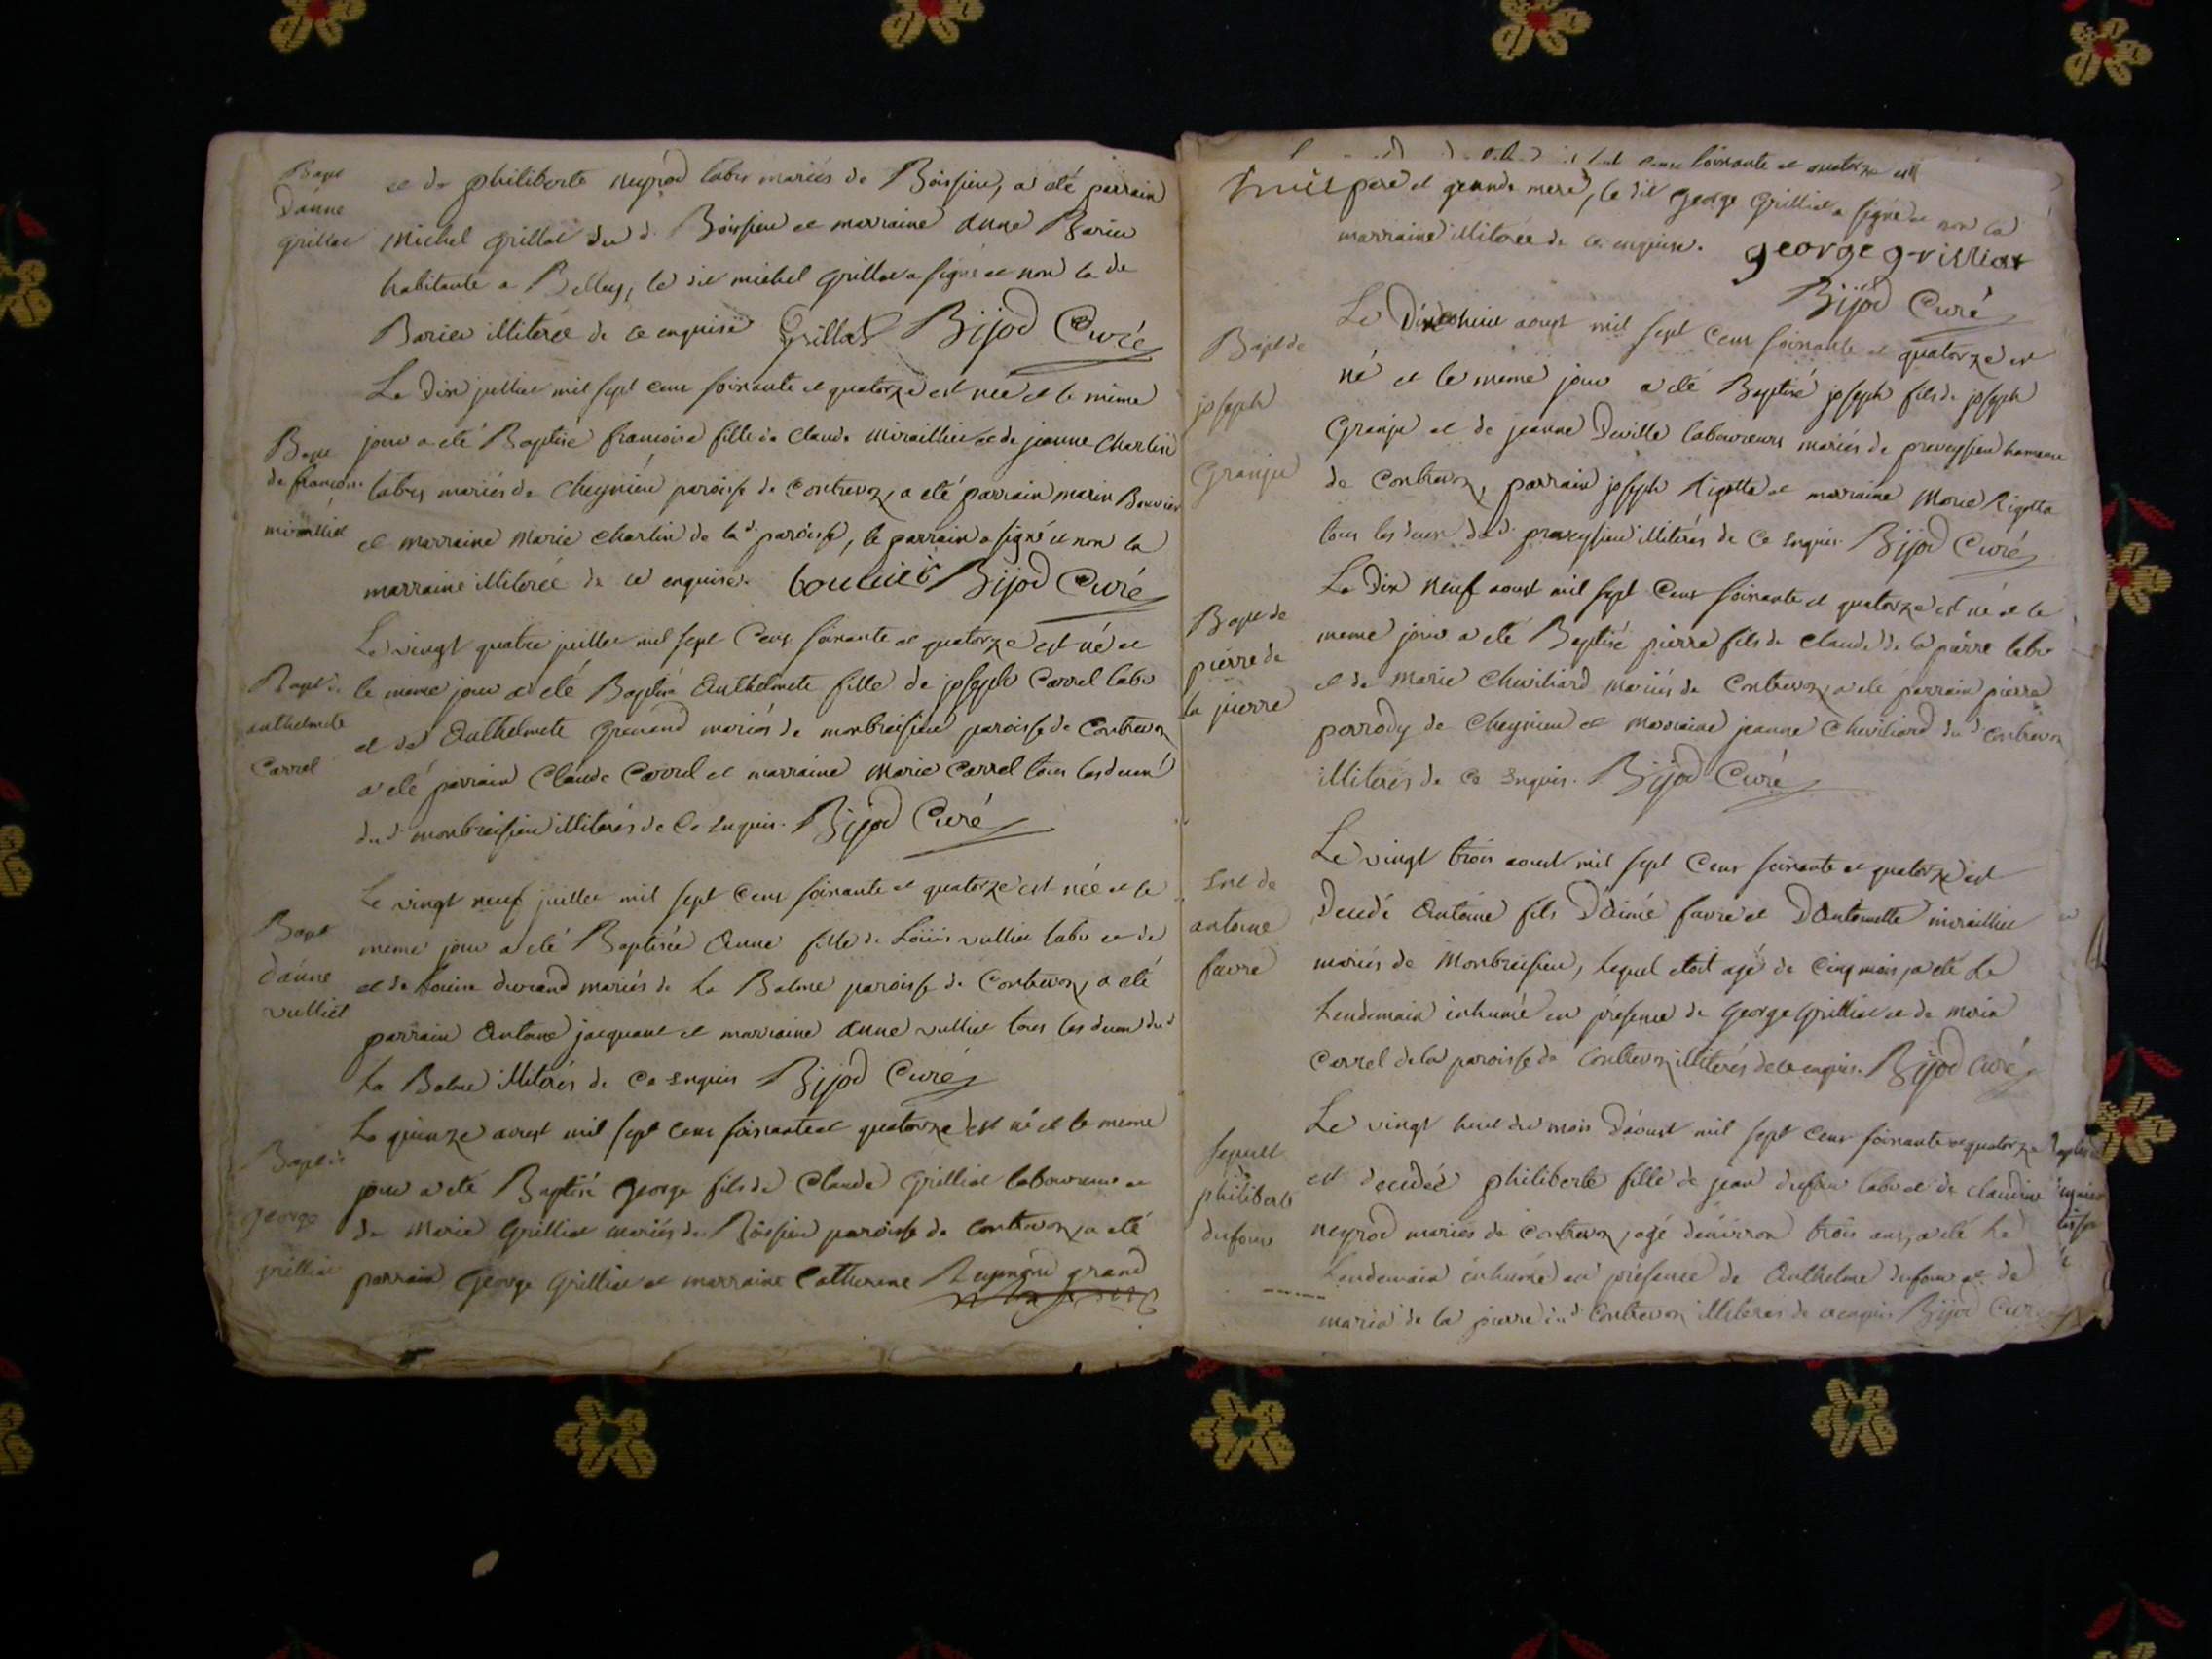 Bapt
D'anne
Grillat
et de philiberte neyrod labrs mariés de Boissieu, a été parrain
Michel Grillat du d. Boissieu et marraine Anne Barieu
habitante a Belley, le dit michel Grillat a signé et non la de
Barieu illiterée de ce enquise Grillat Bijod Curé
Bapt
de françoise
miraillet
Le Dix juillet mil sept cens soixante et quatorze est née et le même
jour a été Baptisé françoise fille de Claude Miraillier et de jeanne Charlin
labrs mariés de Cheynieu paroisse de Contrevoz, a été parrain marin Bouvier
et marraine Marie Charlin de la d. paroisse, le parrain a signé et non la
marraine illiterée de ce enquise. Bijod Curé
Bapt de
anthelmete
Carrel
Le vingt quatre juillet mil sept Cens soixante et quatorze est né et
le meme jour a été Baptisé Anthelmete fille de joseph Carrel labr
et de Anthelmete mariés de monbreisieu paroisse de Contrevoz
a été parrain Claude Carrel et marraine Marie Carrel tous les deux
du d. monbreisieu illiterés de Ce Enquis. Bijod Curé
Bapt
d'anne
vulliet
Le vingt neuf juillet mil sept Cens soixante et quatorze est née et le
meme jour a été Baptisée Anne fille de Loüis vulliet labr et de
et de Louise durand mariés de La Balme paroisse de Contrevoz, a été
parrain Antoine jacquant et marraine Anne vulliet tous les deux du d
La Balme illiterés de Ce Enquis Bijod Curé
Bapt de
george
grilliat
Le quinze aoust mil sept Cens soixante et quatorze est né et le meme
jour a été Baptisé George fils de Claude Grilliat laboureur et
de Marie Grilliat mariés de Boissieu paroisse de Contrevoz, a été
parrain George Grilliat et marraine Catherine grand
soixante et quatorze est
pere et grande mere, le dit George Grilliat a signé et non la
marraine illiterée de ce enquise. george grilliat
Bijod Curé
Bapt de
joseph
Granju
Le Dixehuit aoust mil sept Cens soixante et quatorze est
né et le même jour a été Baptisé joseph fils de joseph
Granju et de jeanne Deville laboureurs mariés de preveysieu hameau
de Contrevoz, parrain joseph Rigotta et marraine Marie Rigotta
tous les deux du d. preveysieu illiterés de Ce Enquis. Bijod Curé
Bapt de
pierre de
la pierre
Le Dix Neuf aoust mil sept Cens soixante et quatorze est né et le
meme jour a été Baptisé pierre fils de Claude de la pierre labr
et de Marie Cheviliard mariés de Contrevoz, a été parrain pierre
perrody de Cheynieu et Marraine jeanne Cheviliard du d. Contrevoz
illiterés de Ce Enquis. Bijod Curé
de
antoine
favre
Le vingt trois aoust mil sept Cens soixante et quatorze est
Decedé Antoine fils D'aimé favre et D'Antoinette miraillier
mariés de Monbreisieu, lequel etoit agé de Cinq mois, a été Le
Lendemain inhumé en présence de George Grilliat et de marin
Carrel de la paroisse de Contrevoz illiterés de ce enquis. Bijod Curé
sepult
de
philiberte
dufour
Le vingt huit du mois d'aoust mil sept Cens soixante et quatorze
est decedée philiberte fille de jean dufour labr et de claudine
neyrod mariés de Contrevoz, agé d'environ trois ans, a été Le
Lendemain inhumé en présence de Anthelme dufour et de
marin de la pierre du d. Contrevoz illiterés de ce enquis Bijod Curé